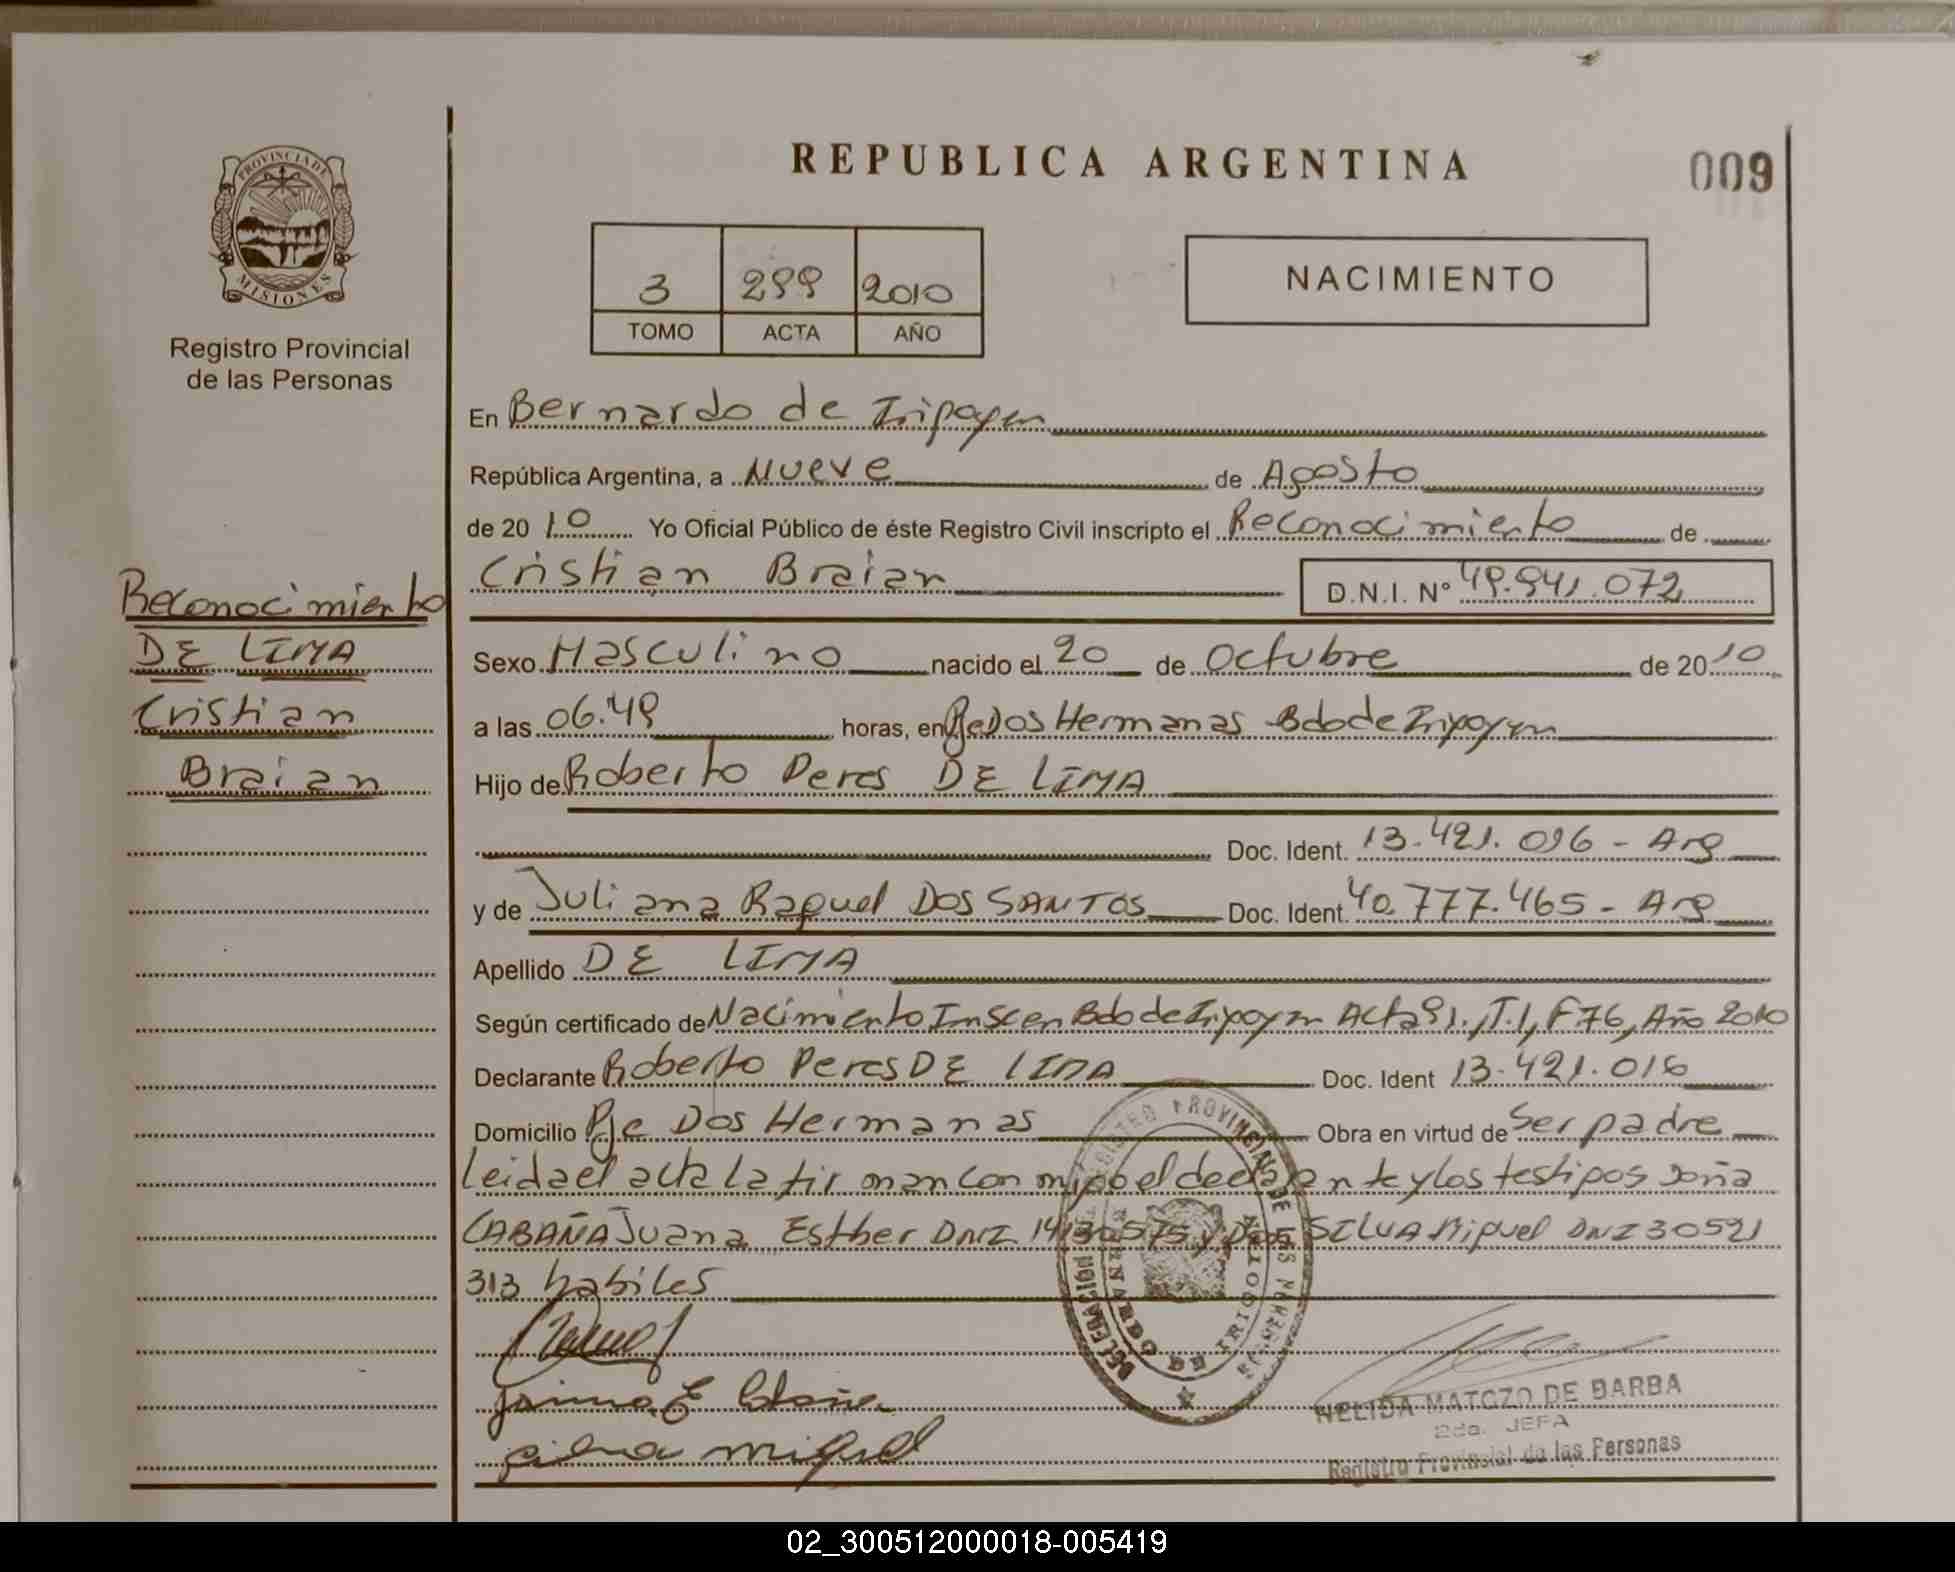 REPUBLICA ARGENTINA
009
PROVINCIA DE
MISIONES
Registro Provincial
de las Personas
3 299 2010
TOMO ACTA AÑO
NACIMIENTO
En Bernardo de Iripoyen
República Argentina, a Nueve de Agosto
de 20 10 Yo Oficial Público de éste Registro Civil inscripto el Reconocimiento de
Cristian Braian D.N.I. Nº 49.941.072
Reconocimiento
DE LIMA
Cristian
Braian
Sexo Masculino nacido el 20 de Octubre de 2010
a las 06.49 horas, en Pje Dos Hermanas Bdo de Iripoyen
Hijo de Roberto Peres DE LIMA
Doc. Ident. 13.421.096 - Arg
y de Juliana Raquel DOS SANTOS Doc. Ident. 40.777.465 - Arg
Apellido DE LIMA
Según certificado de Nacimiento Insc en Bdo de Iripoyen Acta 91., T.1, F 76, Año 2010
Declarante Roberto Peres DE LIMA Doc. Ident 13.421.016
Domicilio Pje Dos Hermanas Obra en virtud de Ser padre
Leida el acta la firman con migo el declarante y los testigos Doña
CABAÑA Juana Esther DNI y Don SILVA Miguel DNI 30521
313 habiles
silva miguel
REGISTRO PROVINCIAL DE LAS PERSONAS
DELEGACION
NELIDA MATOZO DE BARBA
2da. JEFA
Registro Provincial de las Personas
02_300512000018-005419